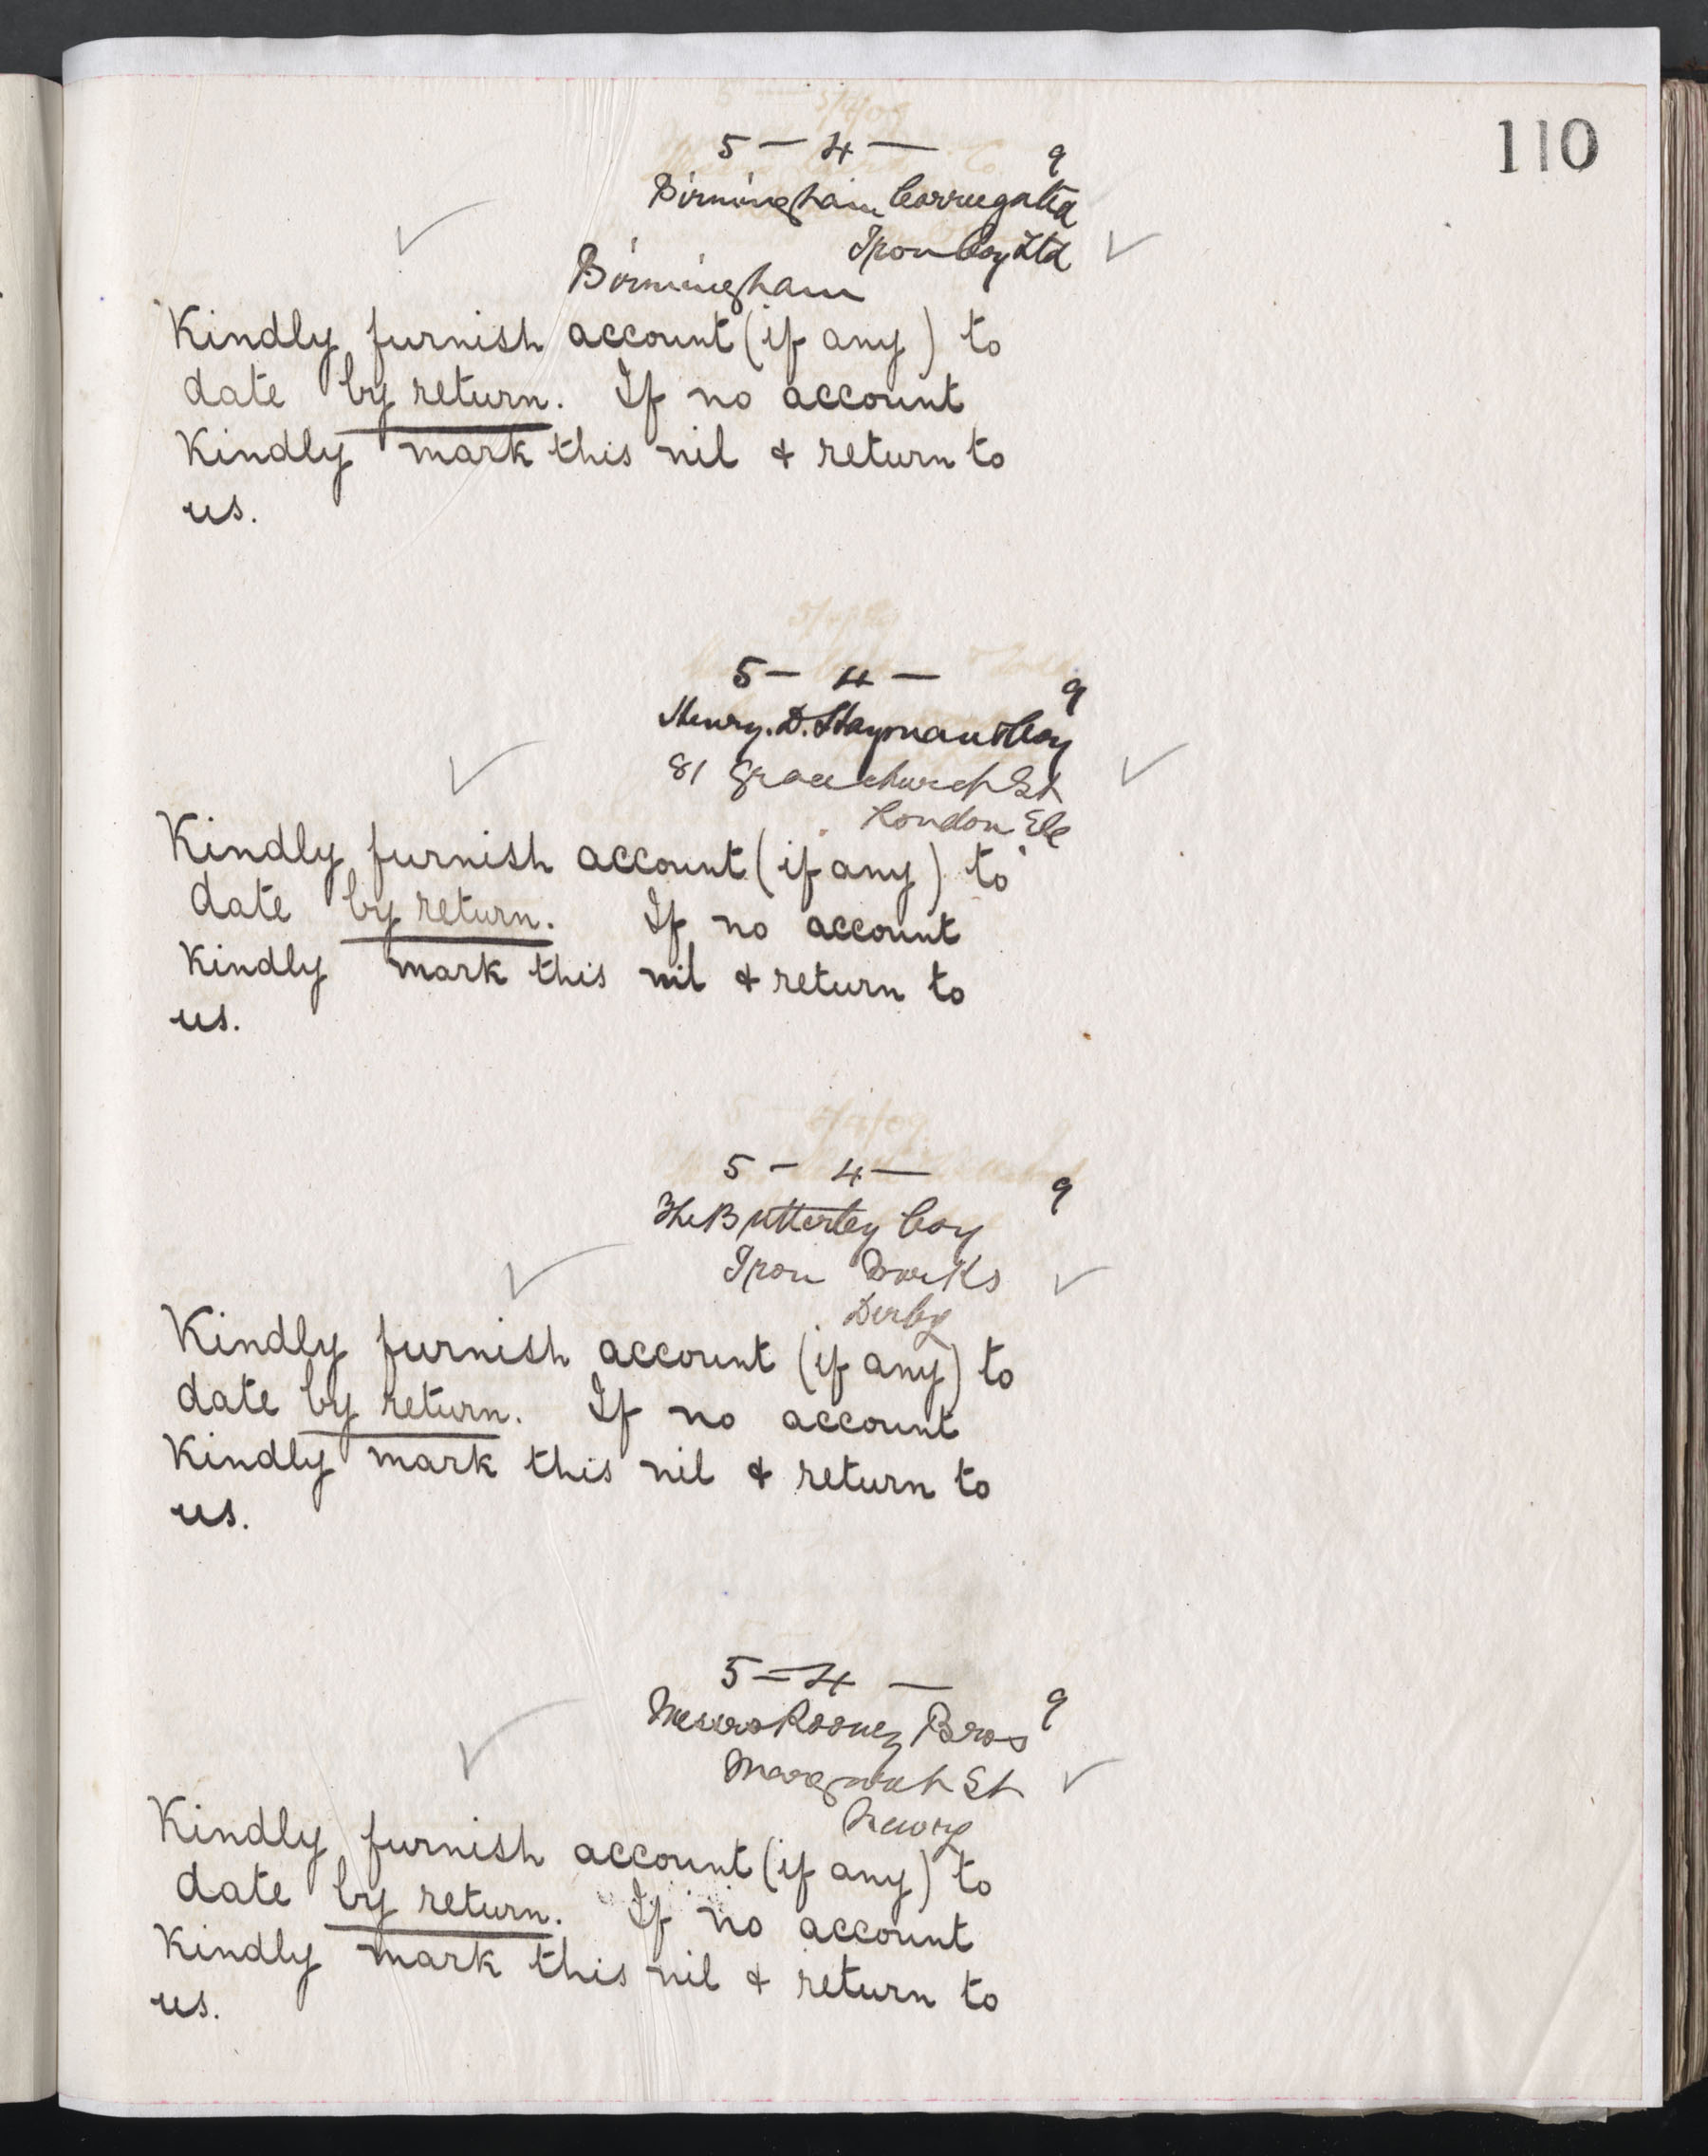 110
5 - 4 - 9
Birmingham Corrugated
Iron Coy Ltd
Birmingham
Kindly furnish account (if any) to
date by return. If no account
Kindly mark this nil & return to
us.
5 - 4 - 9
Henry. D. Stayman & Coy
81 Gracechurch St
London EC
Kindly furnish account (if any) to
date by return. If no account
Kindly mark this nil & return to
us.
5 - 4 - 9
The Butterley Coy
Iron Works
Derby
Kindly furnish account (if any) to
date by return. If no account
Kindly mark this nil & return to
us.
5 - 4 - 9
Messrs Rooney Bros
St
Newry
Kindly furnish account (if any) to
date by return. If no account
Kindly mark this nil & return to
us.